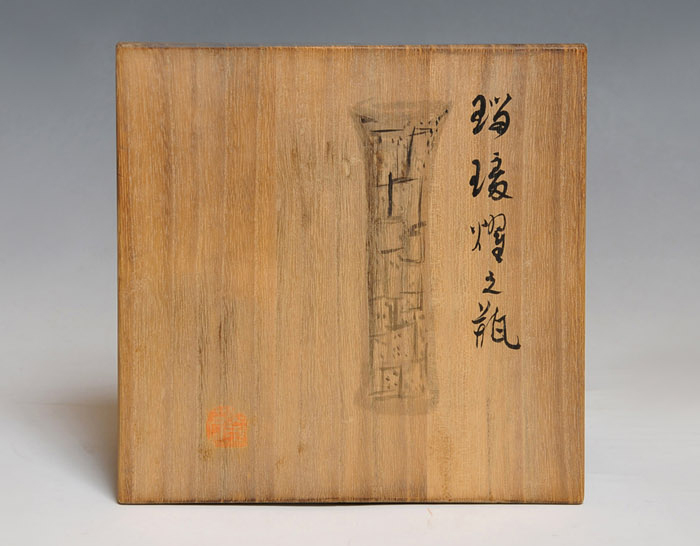 瑠璃燿之瓶